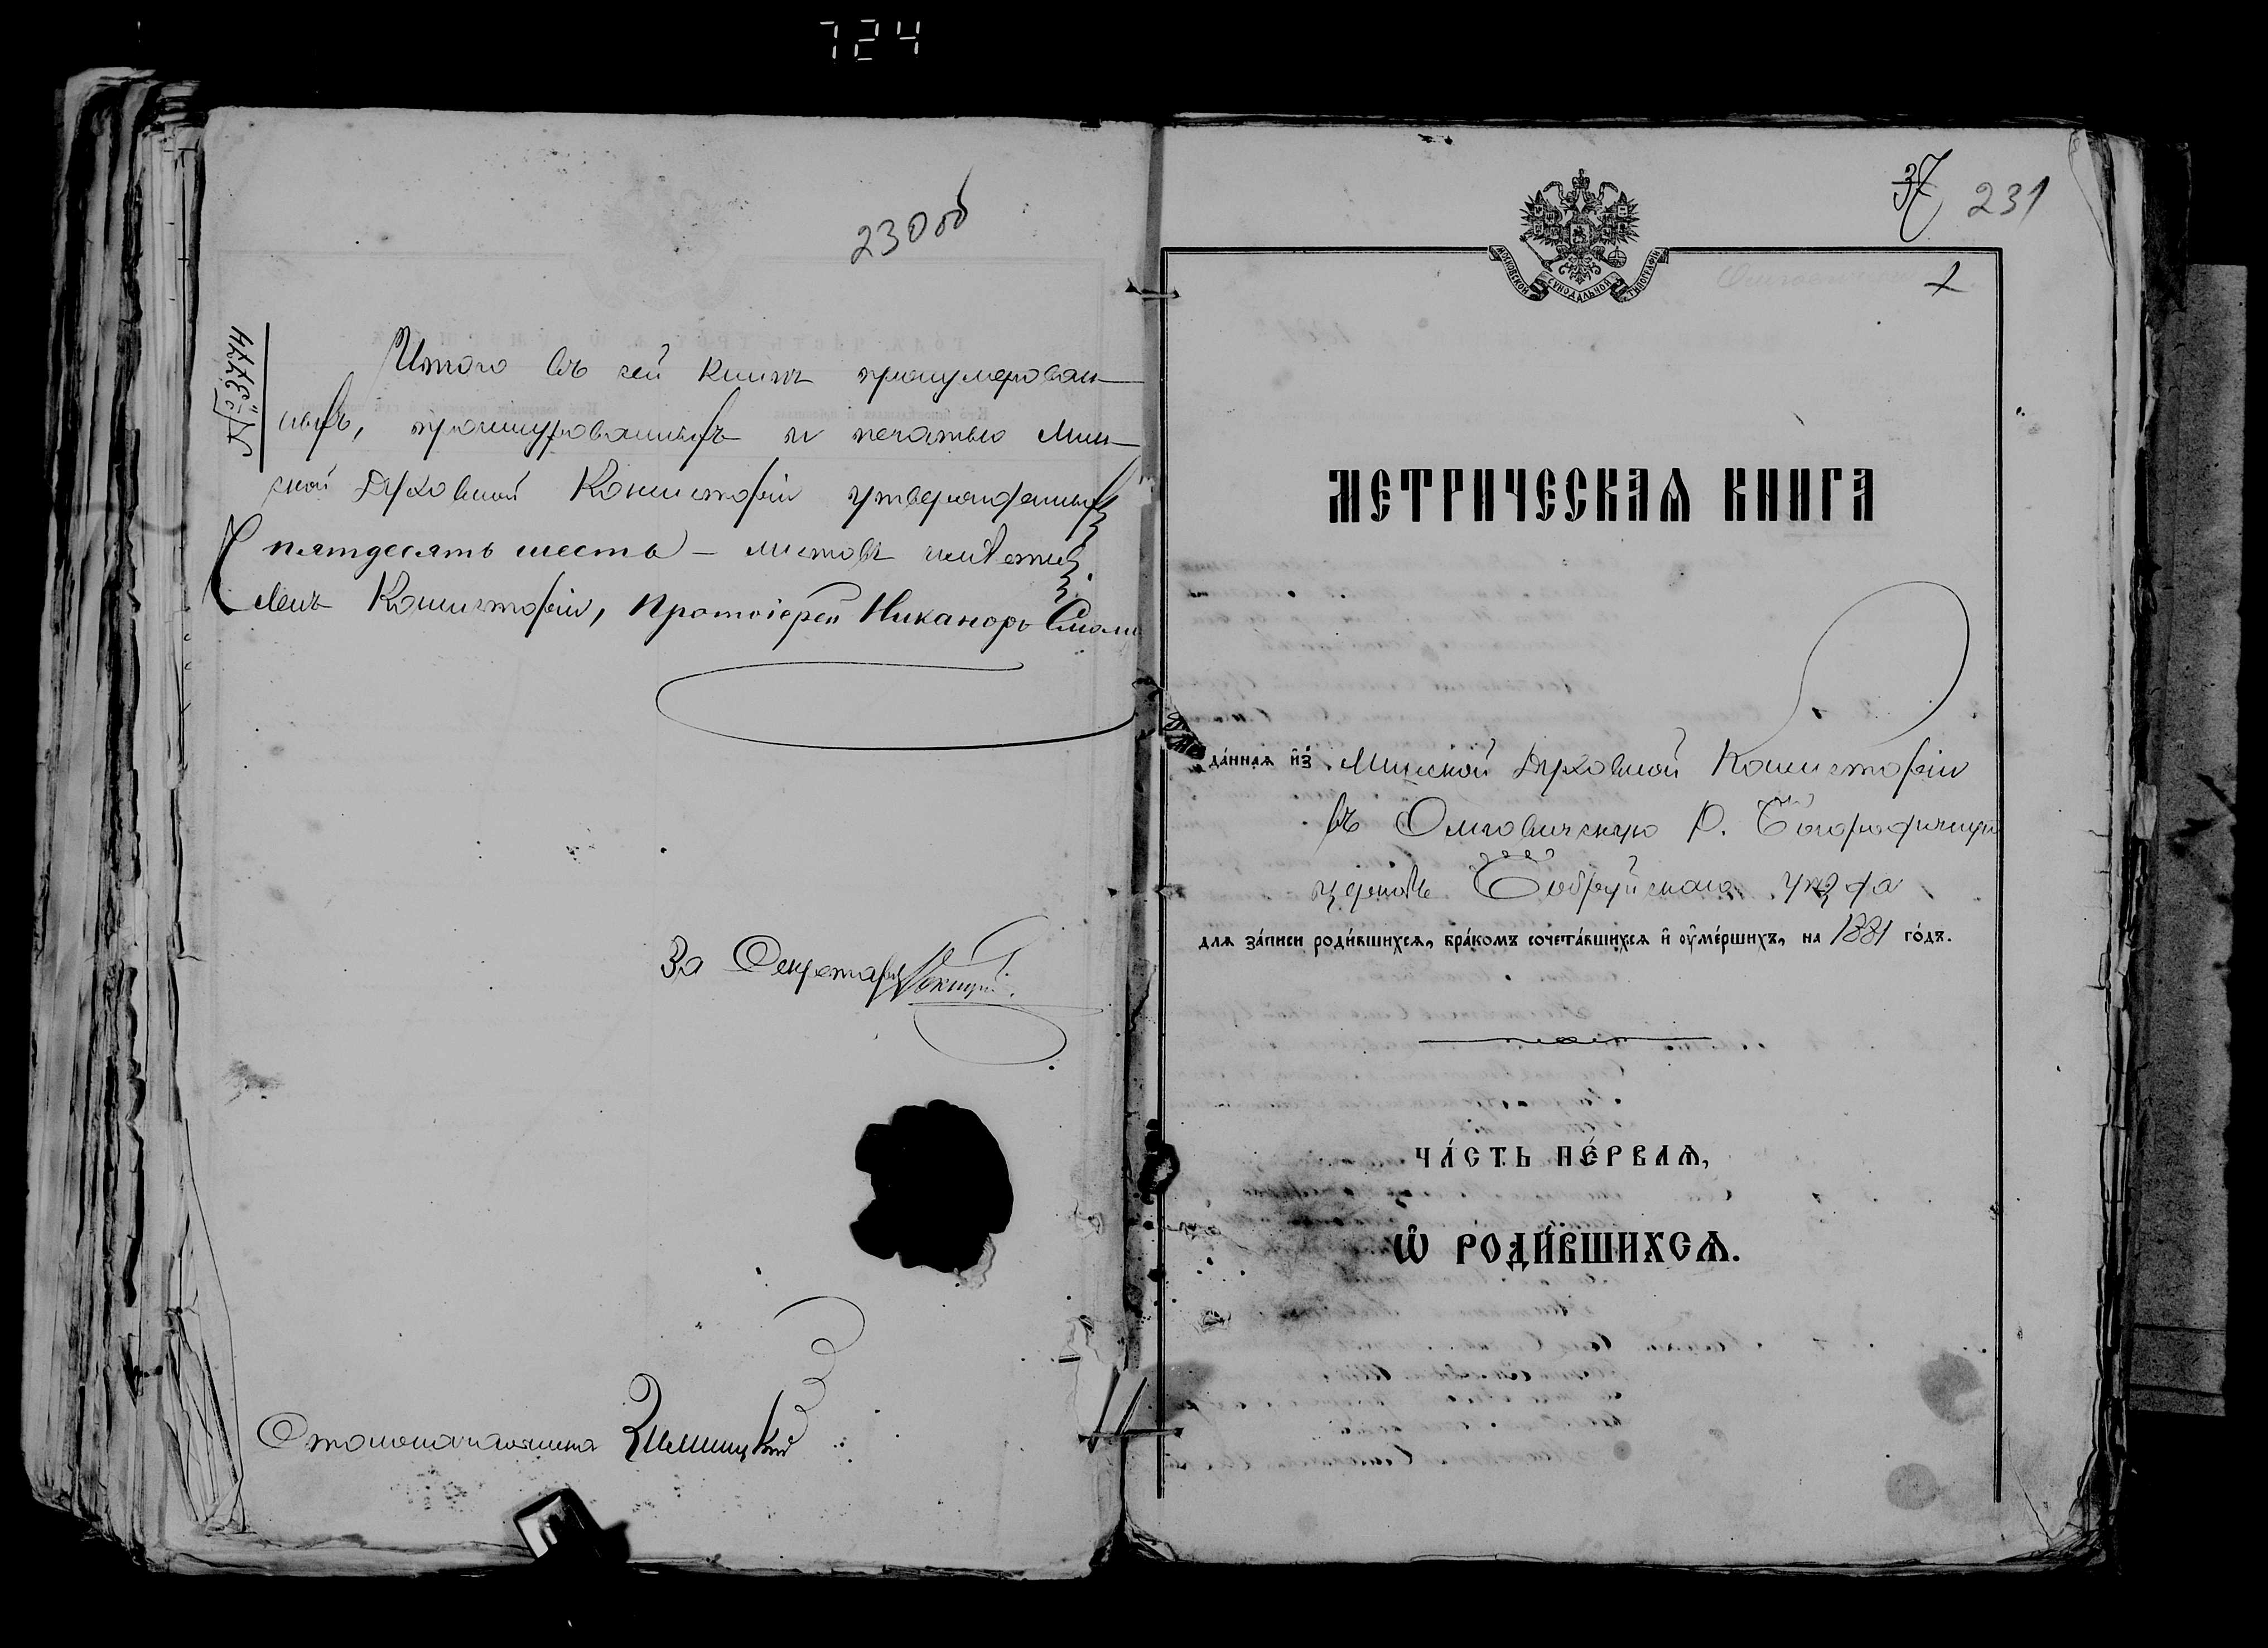 724
230об
№ 3774
Итого въ сей книгѣ пронумерован-
ныхъ, прошнурованныхъ и печатью Мин-
ской Духовной Консисторіи утвержденныхъ
пятдесятъ шесть — листовъ
Членъ Консисторіи, Протоіерей Никаноръ
За Секретаря
Столоначальника
37 231
МОСКОВСКОЙ СѴНОДАЛЬНОЙ ТИПОГРАФІИ
1
МЕТРИЧЕСКАѦ КНИГА
да́ннаѧ и҆з̾ Минской Духовной Консисторіи
въ Омговичскую Р. Богородичную
церковь Бобруйскаго уѣзда
длѧ за́писи роди́вшихсѧ, бра́комъ сочета́вшихсѧ и҆ ᲂу҆ме́ршихъ, на 1881 го́дъ.
ЧА́СТЬ ПЕ́РВАѦ,
Ѽ РОДИ́ВШИХСѦ.